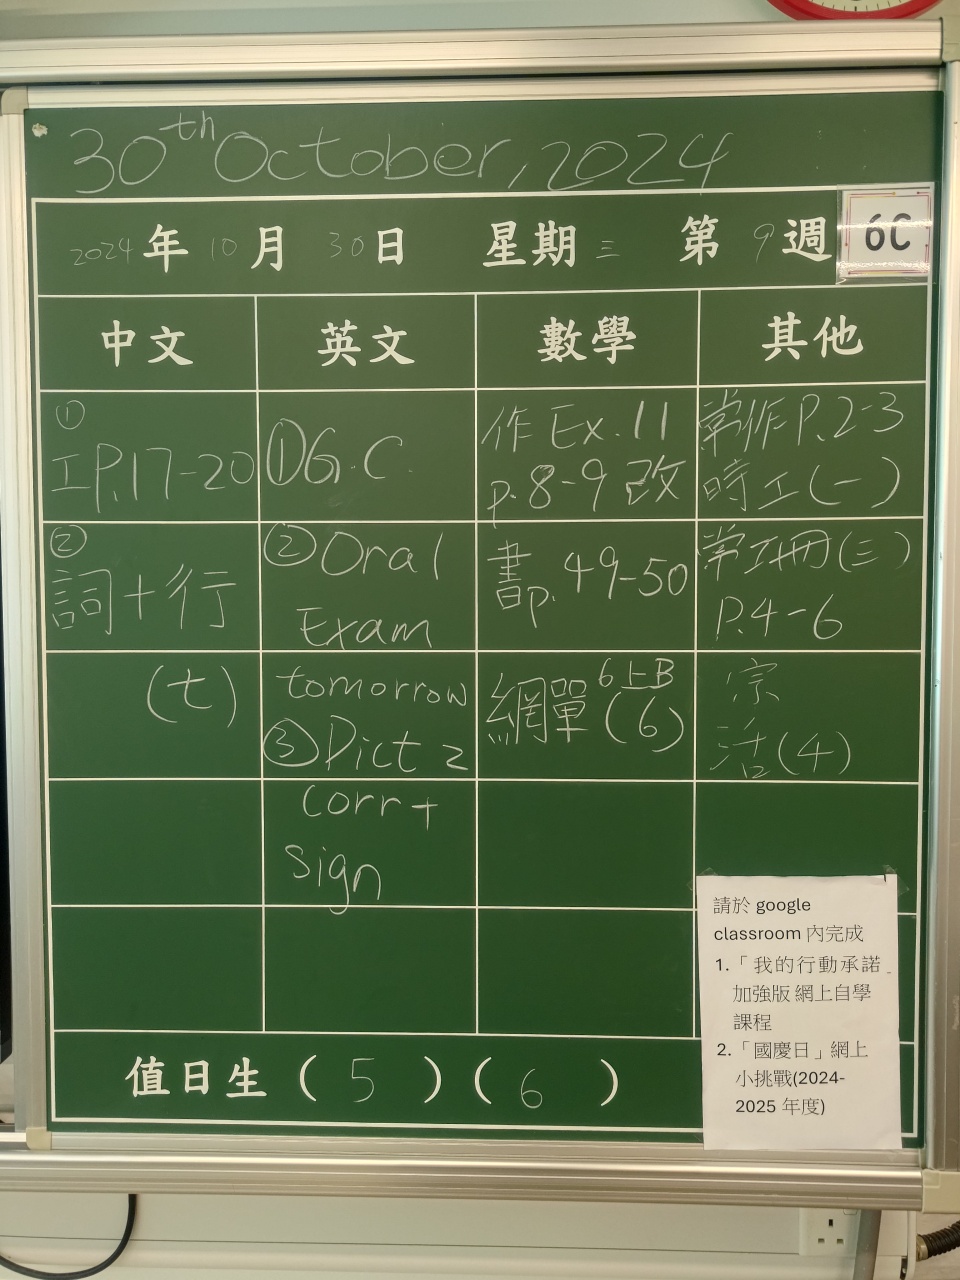 30th October, 2024
2024年 10月 30日 星期三 第9週
6C
中文 英文 數學 其他
①
工P.17-20
②
詞+行
(七)
①G.C.
②Oral
Exam
tomorrow
③Dict 2
corr +
sign
作 Ex. 11
p. 8-9 改
書p. 49-50
網單 6上B
(6)
常作P.2-3
時工(一)
常工冊(三)
P.4-6
宗
活(4)
請於 google
classroom 內完成
1.「我的行動承諾_
加強版 網上自學
課程
2.「國慶日」網上
小挑戰(2024-
2025 年度)
值日生 ( 5 ) ( 6 )